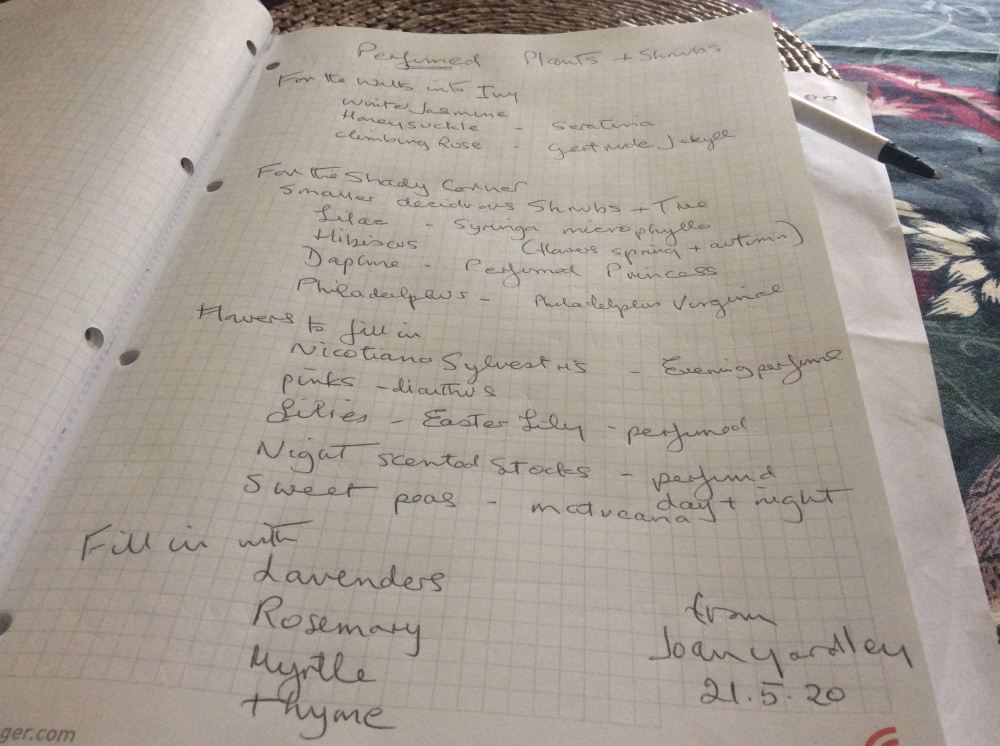 Perfumed Plants + Shrubs
For the walls into Ivy
White Jasmine
Honeysuckle - Seratina
climbing Rose - Gertrude Jekyll
For the Shady Corner
Smaller decidious Shrubs + Tree
Lilac - Syringa microphylla
Hibiscus (flowers spring + autumn)
Daphne - Perfumed Princess
Philadelphus - Philadelphus Virginal
Flowers to fill in
Nicotiana Sylvestris - Evening perfume
pinks - dianthus
Lilies - Easter Lily - perfumed
Night scented Stocks - perfumd
day + night
Sweet peas - matucana
Fill in with
Lavenders
Rosemary
Myrtle
thyme
from
Joan Yardley
21.5.20
ger.com